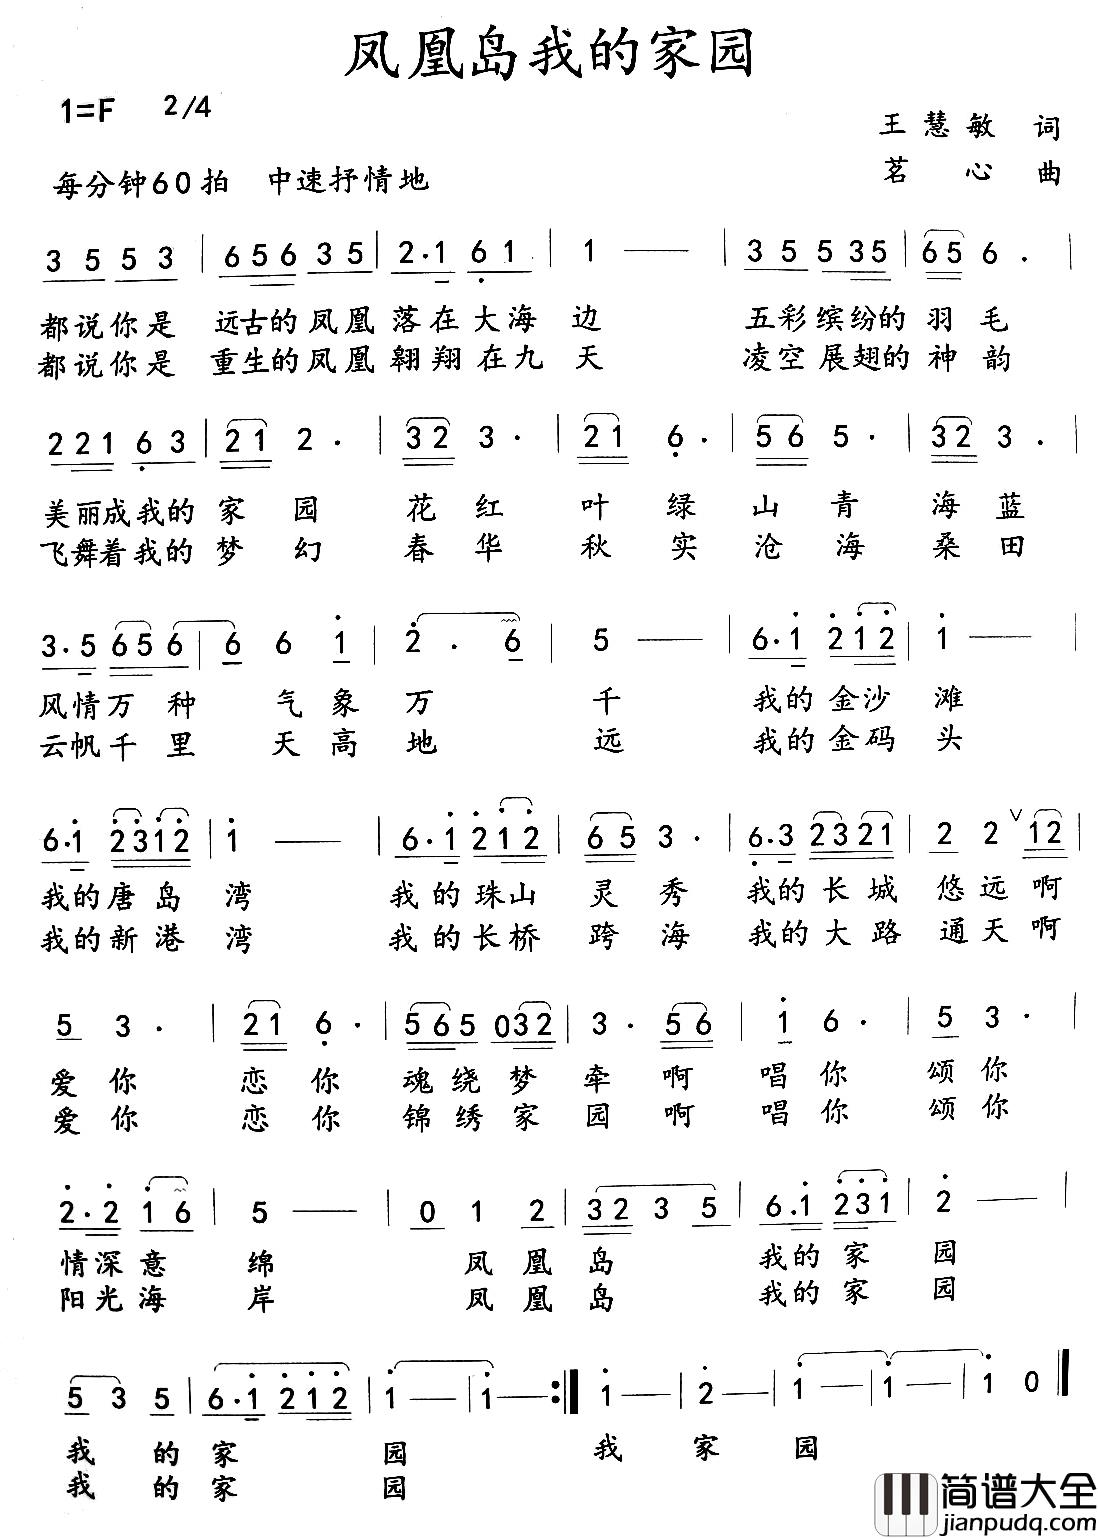 凤凰岛我的家园
1=F 2/4
王慧敏 词
每分钟60拍 中速抒情地
茗心 曲
3 5 5 3 | 6 5 6 3 5 | 2·1 6 1 | 1 — | 3 5 5 3 5 | 6 5 6 · |
都说你是 远古的凤凰 落在大海 边 五彩缤纷的羽毛
都说你是 重生的凤凰 翱翔在九 天 凌空展翅的神韵
2 2 1 6 3 | 2 1 2 · | 3 2 3 · | 2 1 6 · | 5 6 5 · | 3 2 3 · |
美丽成我的 家园 花红 叶绿 山青 海蓝
飞舞着我的 梦幻 春华 秋实 沧海 桑田
3·5 6 5 6 | 6 6 1 | 2 · 6 | 5 — | 6·1 2 1 2 | 1 — |
风情万种 气象 万 千 我的金沙 滩
云帆千里 天高 地 远 我的金码 头
6·1 2 3 1 2 | 1 — | 6·1 2 1 2 | 6 5 3 · | 6·3 2 3 2 1 | 2 2 ∨ 1 2 |
我的唐岛 湾 我的珠山 灵秀 我的长城 悠远啊
我的新港 湾 我的长桥 跨海 我的大路 通天啊
5 3 · | 2 1 6 · | 5 6 5 0 3 2 | 3 · 5 6 | 1 6 · | 5 3 · |
爱你 恋你 魂绕梦 牵啊 唱你 颂你
爱你 恋你 锦绣家 园啊 唱你 颂你
2·2 1 6 | 5 — | 0 1 2 | 3 2 3 5 | 6·1 2 3 1 | 2 — |
情深意 绵 凤凰 岛 我的家 园
阳光海 岸 凤凰 岛 我的家 园
5 3 5 | 6·1 2 1 2 | 1 — | 1 — :| 1 — | 2 — | 1 — | 1 — | 1 0 ‖
我 的 家 园 我 家 园
我 的 家 园
简谱大全
jianpudq.com